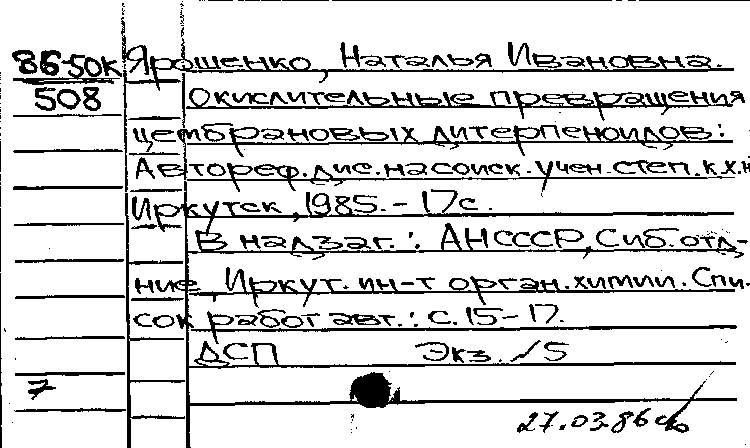 86-50к Ярошенко, Наталья Ивановна.
508 Окислительные превращения
цембрановых дитерпеноидов:
Автореф. дис. на соиск. учен. степ. к.х.н
Иркутск, 1985. - 17с.
В надзаг.: АН СССР, Сиб. отд-
ние, Иркут. ин-т орган. химии. Спи-
сок работ авт.: с. 15-17.
ДСП Экз. №5
7
27.03.86